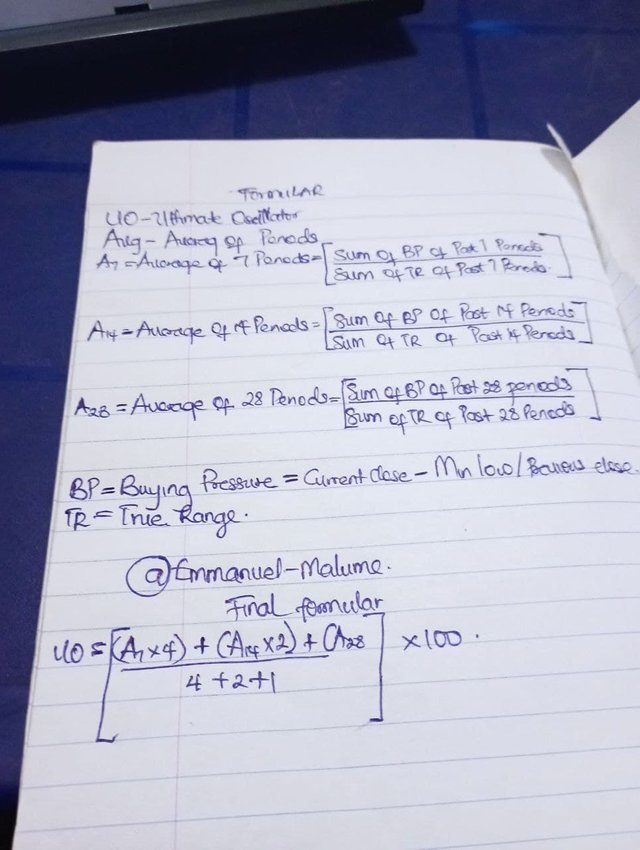 FORMULAR
UO - Ultimate Oscillator
Avg - Average of Periods
A7 = Average of 7 Periods = [Sum of BP of Past 7 Periods
Sum of TR of Past 7 Periods]
A14 = Average of 14 Periods = [Sum of BP Of Past 14 Periods
Sum of TR of Past 14 Periods]
A28 = Average of 28 Periods = [Sum of BP Of Past 28 periods
Sum of TR of Past 28 Periods]
BP = Buying Pressure = Current Close - Min low / Previous close.
TR = True Range.
@Emmanuel-Malume.
Final formular
UO = [(A7 x 4) + (A14 x 2) + (A28
4 + 2 + 1] x 100.